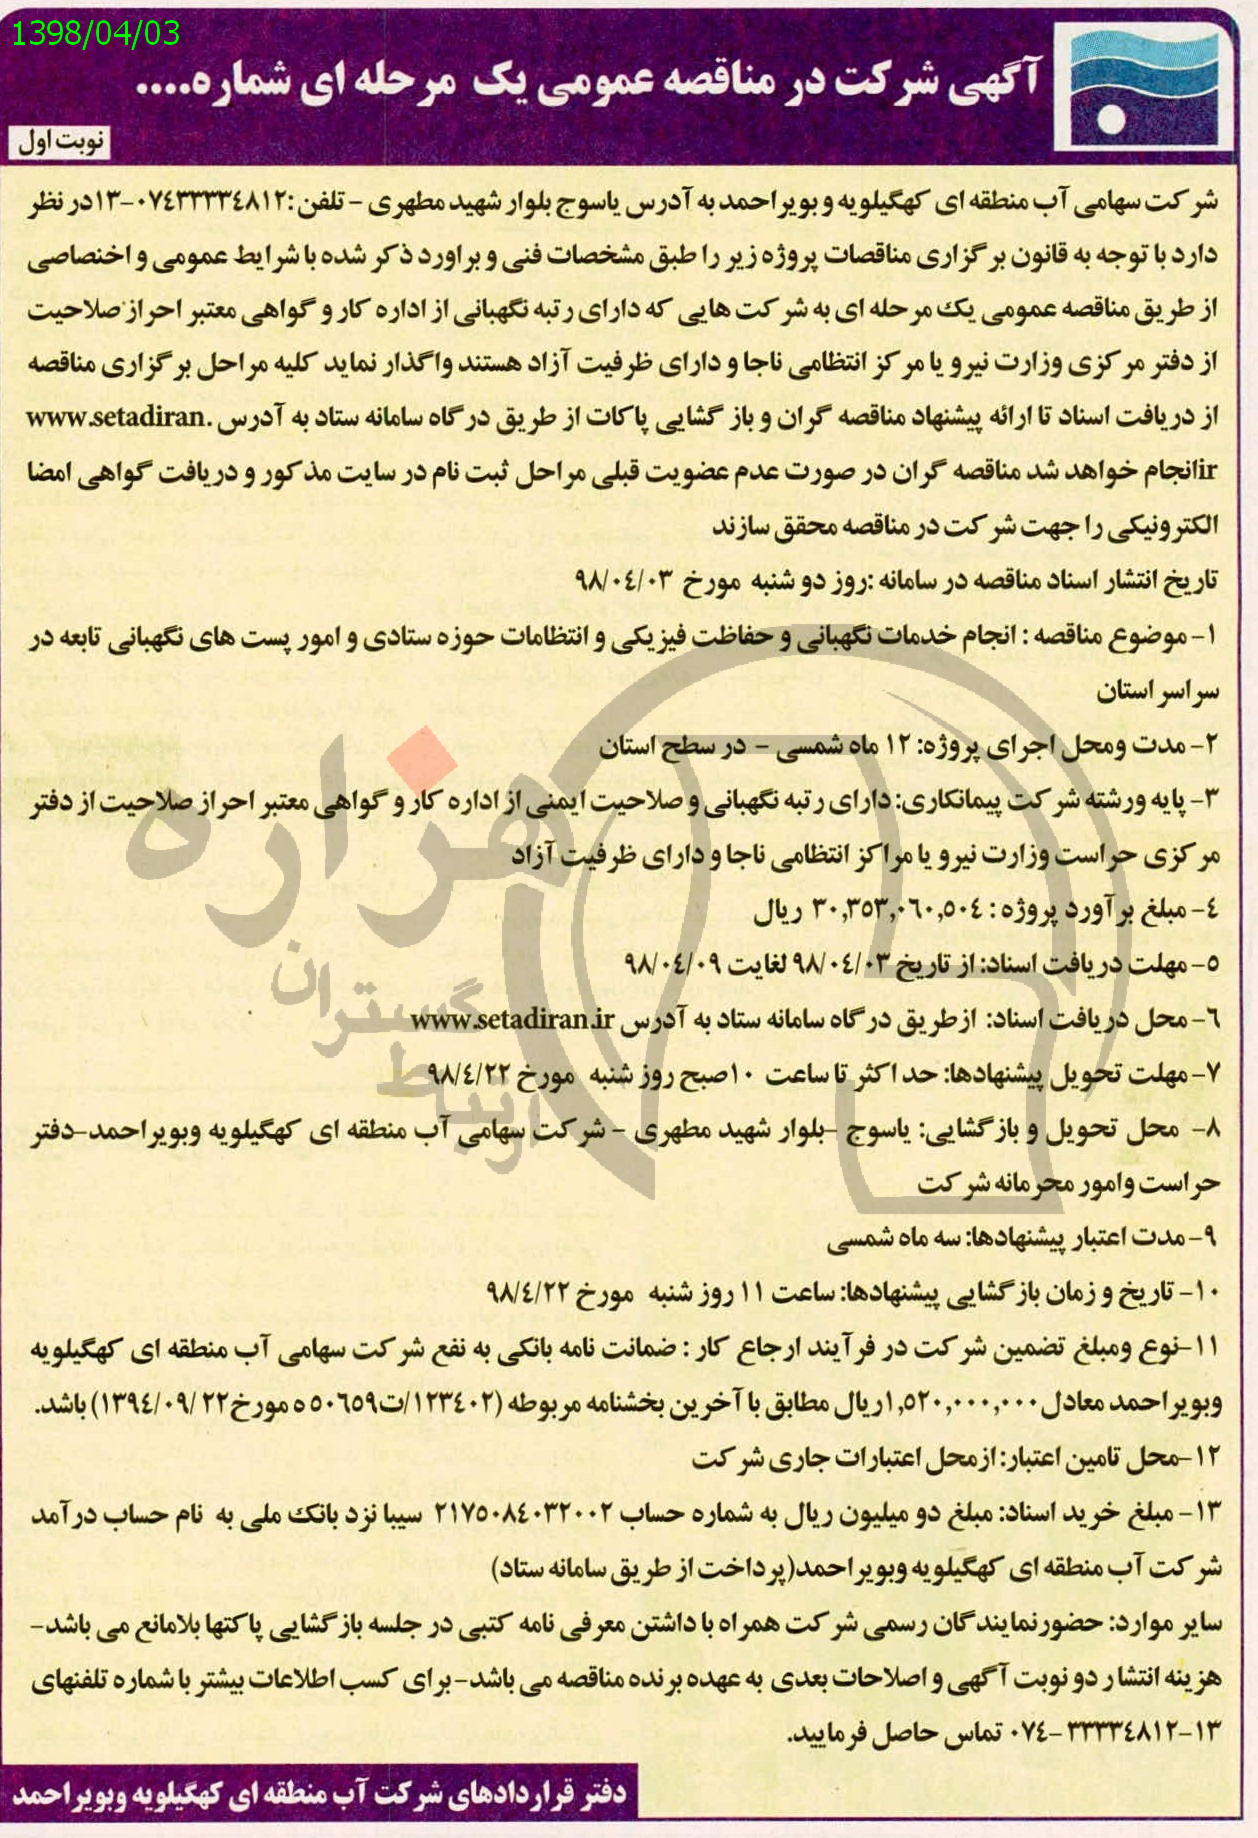 1398/04/03
آگهی شرکت در مناقصه عمومی یک مرحله ای شماره....
نوبت اول
شرکت سهامی آب منطقه ای کهگیلویه و بویراحمد به آدرس یاسوج بلوار شهید مطهری - تلفن: ۰۷۴۳۳۳۳۴۸۱۲-۱۳ در نظر
دارد با توجه به قانون برگزاری مناقصات پروژه زیر را طبق مشخصات فنی و براورد ذکر شده با شرایط عمومی و اختصاصی
از طریق مناقصه عمومی یک مرحله ای به شرکت هایی که دارای رتبه نگهبانی از اداره کار و گواهی معتبر احراز صلاحیت
از دفتر مرکزی وزارت نیرو یا مرکز انتظامی ناجا و دارای ظرفیت آزاد هستند واگذار نماید کلیه مراحل برگزاری مناقصه
از دریافت اسناد تا ارائه پیشنهاد مناقصه گران و باز گشایی پاکات از طریق درگاه سامانه ستاد به آدرس www.setadiran.
ir انجام خواهد شد مناقصه گران در صورت عدم عضویت قبلی مراحل ثبت نام در سایت مذکور و دریافت گواهی امضا
الکترونیکی را جهت شرکت در مناقصه محقق سازند
تاریخ انتشار اسناد مناقصه در سامانه :روز دو شنبه مورخ ۹۸/۰۴/۰۳
۱- موضوع مناقصه : انجام خدمات نگهبانی و حفاظت فیزیکی و انتظامات حوزه ستادی و امور پست های نگهبانی تابعه در
سراسر استان
۲- مدت ومحل اجرای پروژه: ۱۲ ماه شمسی - در سطح استان
۳- پایه ورشته شرکت پیمانکاری: دارای رتبه نگهبانی و صلاحیت ایمنی از اداره کار و گواهی معتبر احراز صلاحیت از دفتر
مرکزی حراست وزارت نیرو یا مراکز انتظامی ناجا و دارای ظرفیت آزاد
۴- مبلغ برآورد پروژه : ۳۰,۳۵۳,۰۶۰,۵۰۴ ریال
۵- مهلت دریافت اسناد: از تاریخ ۹۸/۰۴/۰۳ لغایت ۹۸/۰۴/۰۹
۶- محل دریافت اسناد: ازطریق درگاه سامانه ستاد به آدرس www.setadiran.ir
۷- مهلت تحویل پیشنهادها: حداکثر تا ساعت ۱۰صبح روز شنبه مورخ ۹۸/۴/۲۲
۸- محل تحویل و بازگشایی: یاسوج -بلوار شهید مطهری - شرکت سهامی آب منطقه ای کهگیلویه وبویراحمد-دفتر
حراست وامور محرمانه شرکت
۹- مدت اعتبار پیشنهادها: سه ماه شمسی
۱۰- تاریخ و زمان بازگشایی پیشنهادها: ساعت ۱۱ روز شنبه مورخ ۹۸/۴/۲۲
۱۱-نوع ومبلغ تضمین شرکت در فرآیند ارجاع کار : ضمانت نامه بانکی به نفع شرکت سهامی آب منطقه ای کهگیلویه
وبویراحمد معادل ۱,۵۲۰,۰۰۰,۰۰۰ریال مطابق با آخرین بخشنامه مربوطه (۱۲۳۴۰۲/ت۵۰۶۵۹ ه مورخ۱۳۹۴/۰۹/۲۲) باشد.
۱۲-محل تامین اعتبار: ازمحل اعتبارات جاری شرکت
۱۳- مبلغ خرید اسناد: مبلغ دو میلیون ریال به شماره حساب ۲۱۷۵۰۸۴۰۳۲۰۰۲ سیبا نزد بانک ملی به نام حساب درآمد
شرکت آب منطقه ای کهگیلویه وبویراحمد(پرداخت از طریق سامانه ستاد)
سایر موارد: حضورنمایندگان رسمی شرکت همراه با داشتن معرفی نامه کتبی در جلسه بازگشایی پاکتها بلامانع می باشد-
هزینه انتشار دو نوبت آگهی و اصلاحات بعدی به عهده برنده مناقصه می باشد- برای کسب اطلاعات بیشتر با شماره تلفنهای
۰۷۴- ۳۳۳۳۴۸۱۲-۱۳ تماس حاصل فرمایید.
دفتر قراردادهای شرکت آب منطقه ای کهگیلویه وبویراحمد
هزاره
گستران
ارتباط